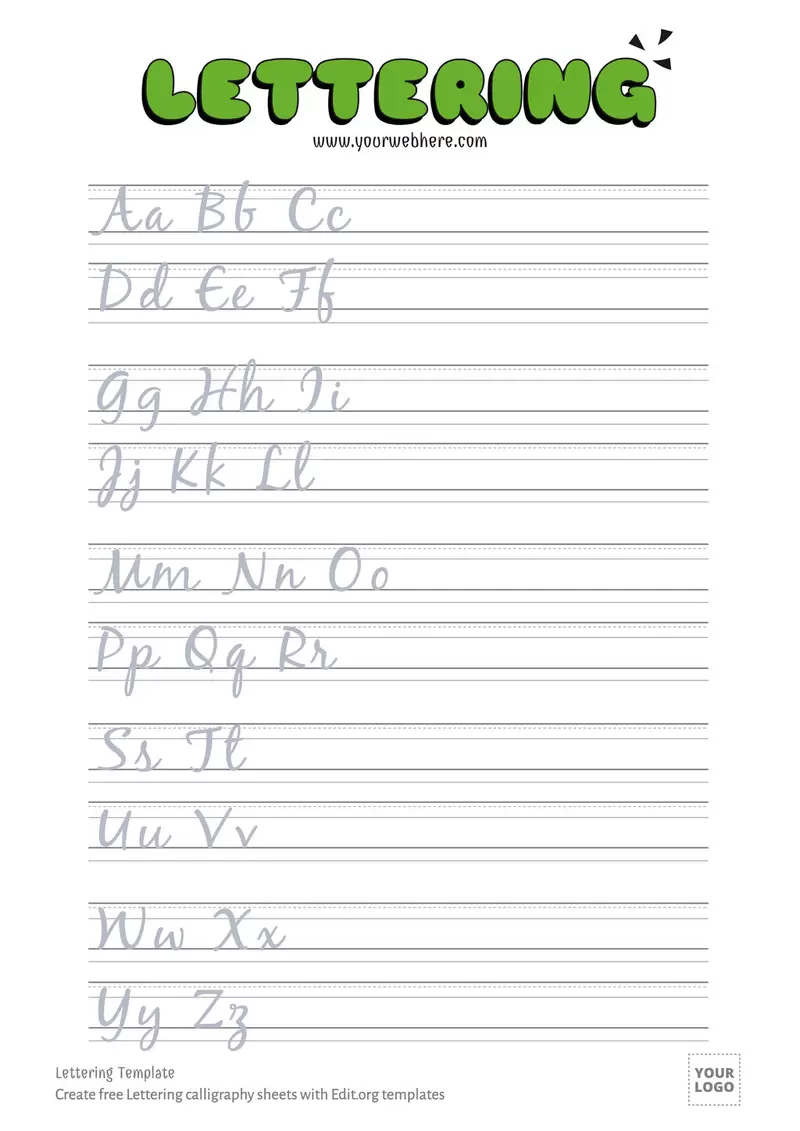 LETTERING
www.yourwebhere.com
Aa Bb Cc
Dd Ee Ff
Gg Hh Ii
Jj Kk Ll
Mm Nn Oo
Pp Qq Rr
Ss Tt
Uu Vv
Ww Xx
Yy Zz
Lettering Template
Create free Lettering calligraphy sheets with Edit.org templates
YOUR
LOGO